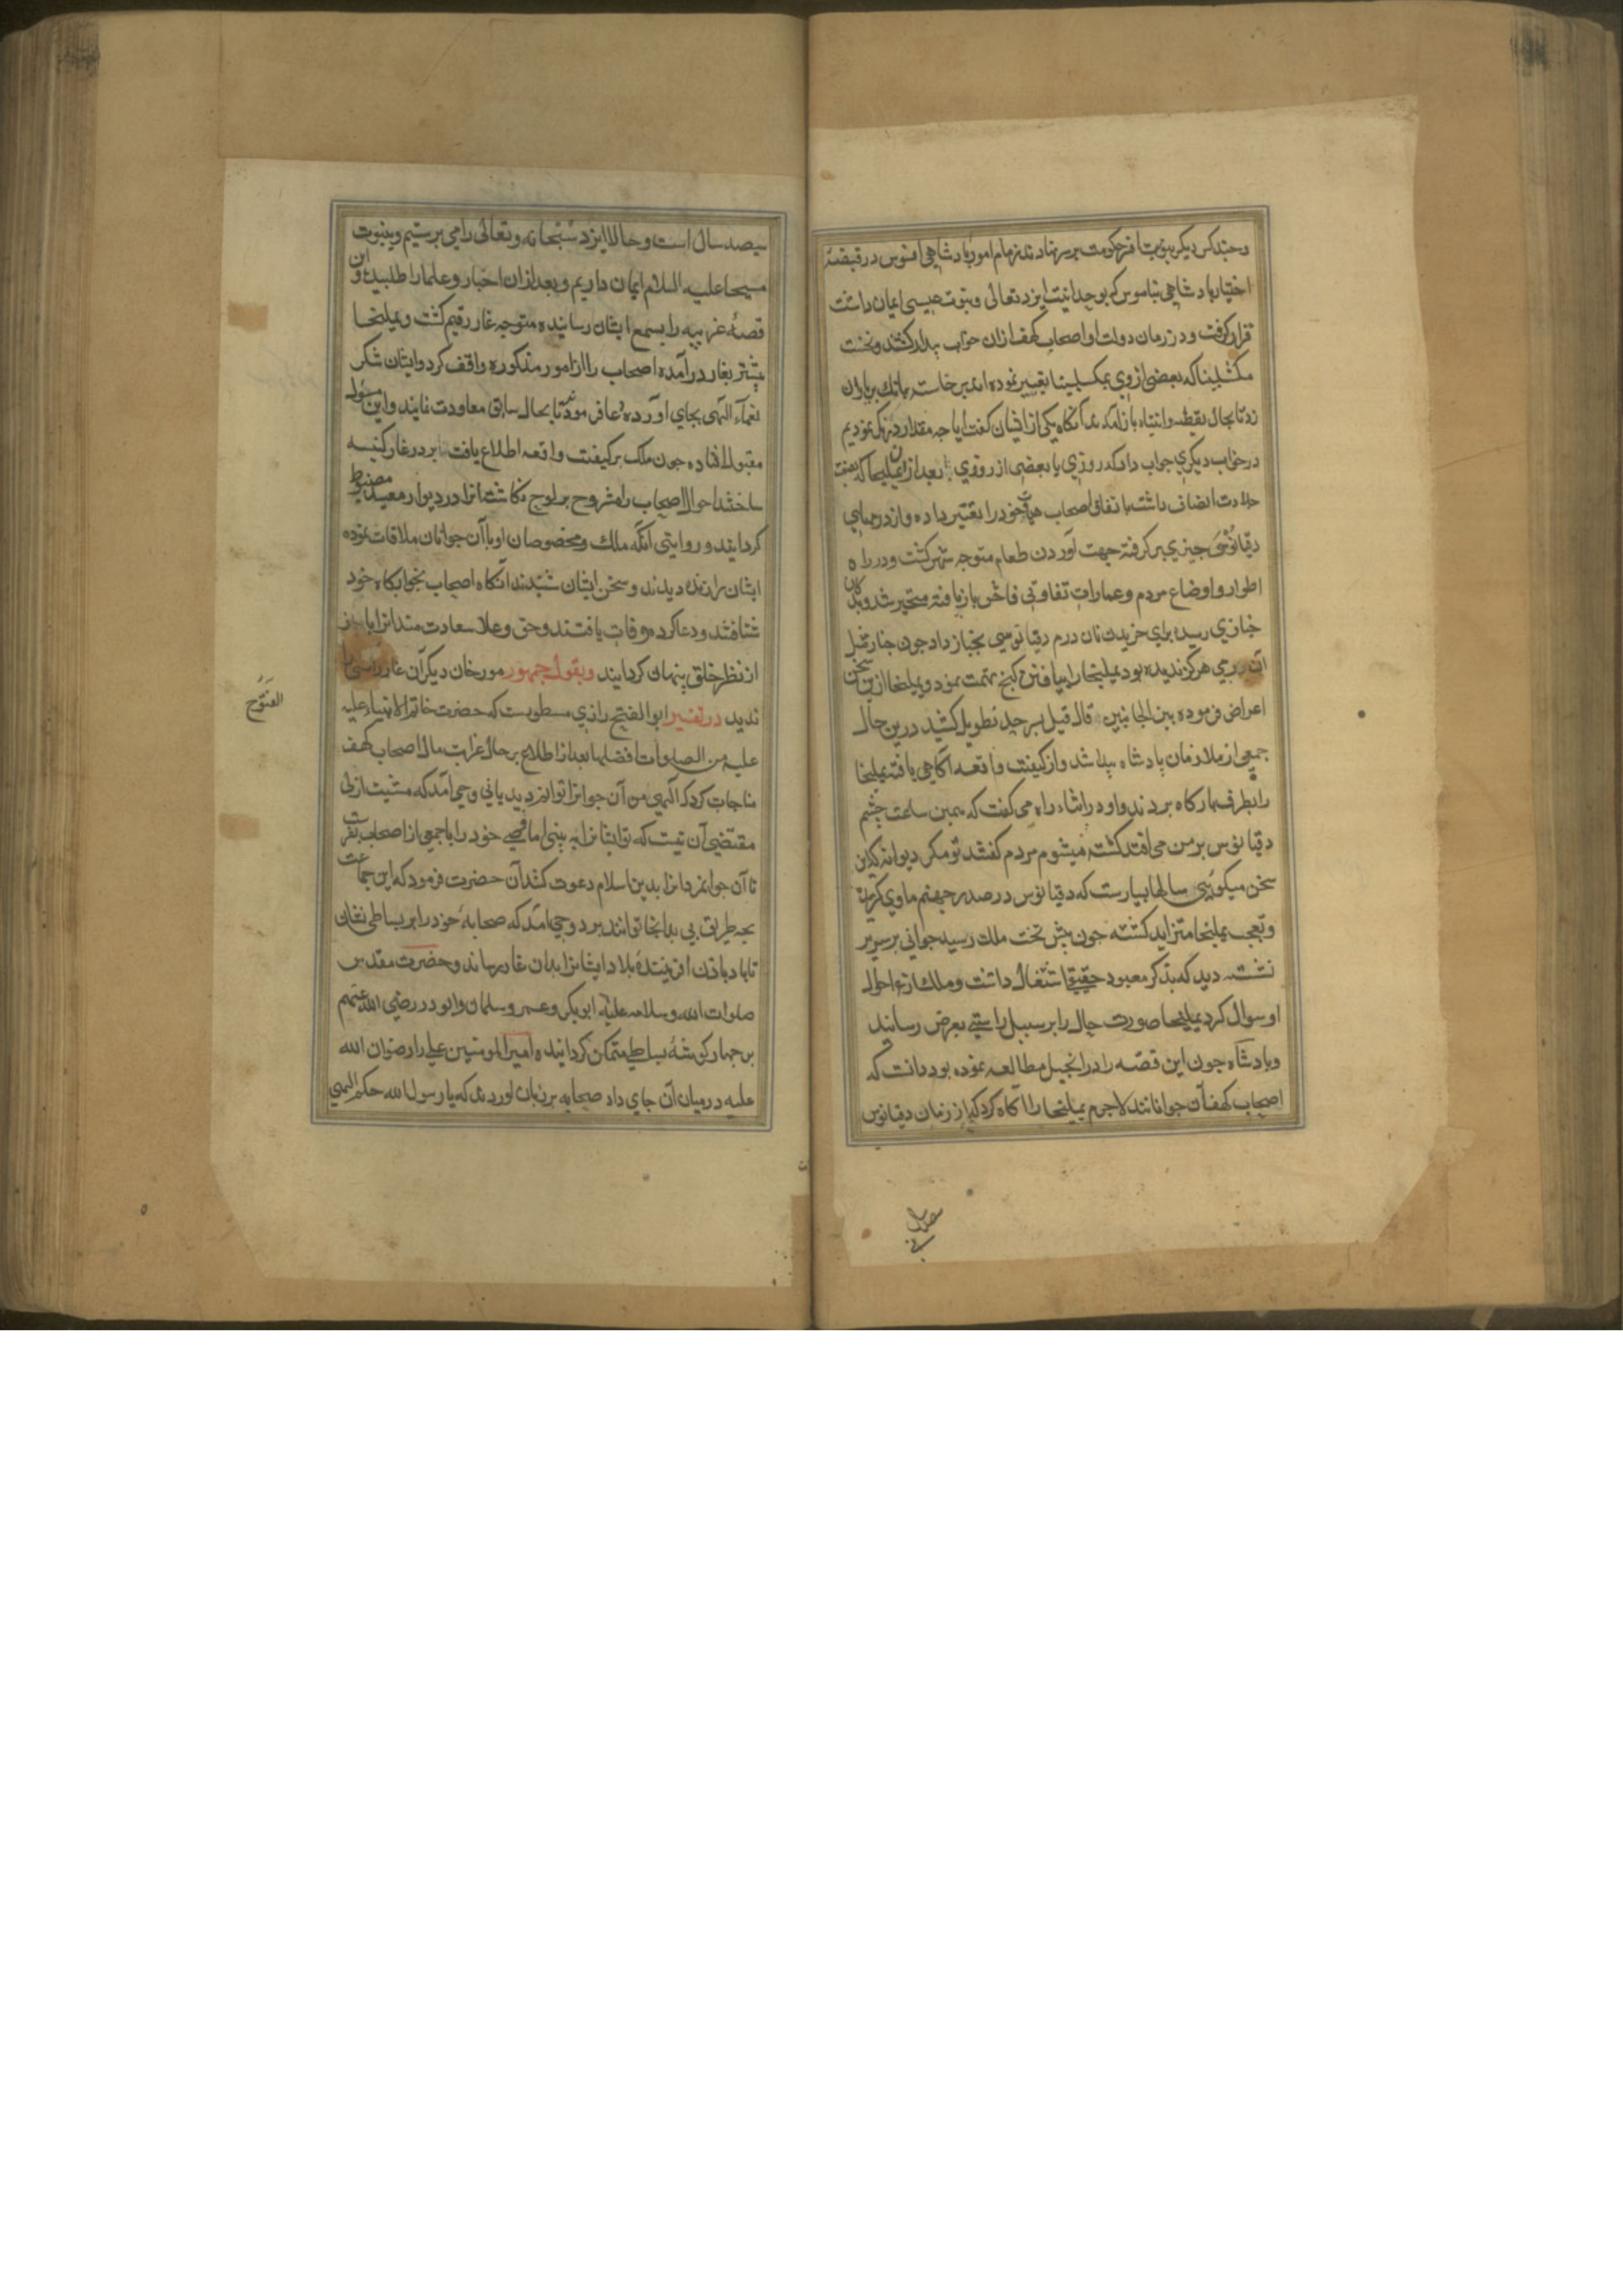 و چند کس دیگر بنوبت افسر حکومت بر سر نهادند زمام امور پادشاهی افسوس در قبضهٔ
اختیار پادشاهی نیاموس که بوحدانیت ایزد تعالی و نبوت عیسی ایمان داشت
قرار گرفت و در زمان دولت او اصحاب کهف از آن خواب بیدار گشتند و نخست
مکشلینا که بعضی از وی بمکسلینا تعبیر نموده اند برخاسته بانک بریاران
زد تا بحال یقظه و انتباه باز آمدند آنکاه یکی از ایشان کفت ایا چه مقدار درنک نمودیم
در خواب دیکری جواب داد که روزی یا بعضی از روزی بعد از آن یملیخا که بصفت
جلادت اتصاف داشت باتفاق اصحاب هیات خود را تغییر داده و از درمهای
دقیانوسی چیزی بر کرفته جهت آوردن طعام متوجه شهر کشت و در راه
اطوار و اوضاع مردم و عمارات تفاوتی فاحش باز یافته متحیر شد و بدکان
خبازی رسیده برای خریدن نان درم دقیانوسی بخباز داد چون خباز مثل
آن درمی هرکز ندیده بود یملیخا را بیافتن کنج تهمت نمود و یملیخا ازین سخن
اعراض فرموده بین الجانبین قال و قیل بسر حد تطویل کشید درین حال
جمعی از ملازمان پادشاه پیدا شد و از کیفیت واقعه آکاهی یافته یملیخا
را بطرف بارکاه بردند و او در اثناء راه می کفت که همین ساعت چشم
دقیانوس بر من می افتد کشته میشوم مردم کفتند تو مکر دیوانه کاین
سخن میکوئی سالها بسیارست که دقیانوس در صدر جهنم ماوی کرفته
و تعجب یملیخا متزاید کشته چون پیش تخت ملک رسید جوانی بر سریر
نشسته دید که بذکر معبود حقیقی اشتغال داشت و ملک از احوال
او سوال کرد یملیخا صورت حال را بر سبیل راستی بعرض رسانید
و پادشاه چون این قصه را در انجیل مطالعه نموده بود دانست که
اصحاب کهف آن جوانانند لاجرم یملیخا را آکاه کرد که از زمان دقیانوس
سیصد سال است و حالا ایزد سبحانه و تعالی را می پرستیم و بنبوت
مسیحا علیه السلام ایمان داریم و بعد از آن احبار و علما را طلبیده و این
قصهٔ غریبه را بسمع ایشان رسانیده متوجه غار رقیم کشت و یملیخا
پیشتر بغار در آمده اصحاب را از امور مذکوره واقف کرد و ایشان شکر
نعماء الهی بجای آورده دعا فرمودند تا بحال سابق معاودت نمایند و این مسئول
مقبول افتاده چون ملک بر کیفیت واقعه اطلاع یافت بر در غار کنیسه
ساخته احوال اصحاب را مشروح بر لوح نکاشته آنرا در دیوار معبد مضبوط
کردانیدند و روایتی آنکه ملک و مخصوصان او با آن جوانان ملاقات نموده
ایشان را زنده دیدند و سخن ایشان شنیدند آنکاه اصحاب بخوابکاه خود
شتافتند و دعا کرده وفات یافتند و حق و علا سعادت مندانرا
از نظر خلق پنهان کردانید و بقول جمهور مورخان دیکر آن غار را کسی
ندید در تفسیر ابو الفتح رازی مسطورست که حضرت خاتم الانبیاء علیه
علیه من الصلوات افضلها بعد از اطلاع بر حال غرابت مال اصحاب کهف
مناجات کرد که الهی من آن جوانانرا توانم دید یا نی وحی آمد که مشیت ازلی
مقتضی آن نیست که تو ایشانرا به بینی اما وصی خود را با جمعی از اصحاب بفرست
تا آن جوانمردانرا بدین اسلام دعوت کنند آن حضرت فرمود که این جماعت
بچه طریق پی بدانجا توانند برد وحی امد که صحابهٔ خود را بر بساطی نشان
تا باد باذن افرینندهٔ بلاد ایشانرا بدان غار رساند و حضرت مقدس
صلوات الله و سلامه علیه ابو بکر و عمر و سلمان و ابو ذر رضی الله عنهم
بر چهار کوشهٔ بساطی متمکن کردانیده امیر المومنین علی را رضوان الله
علیه در میان آن جای داد صحابه بر زبان اوردند که یا رسول الله حکم الهی
الفتوح